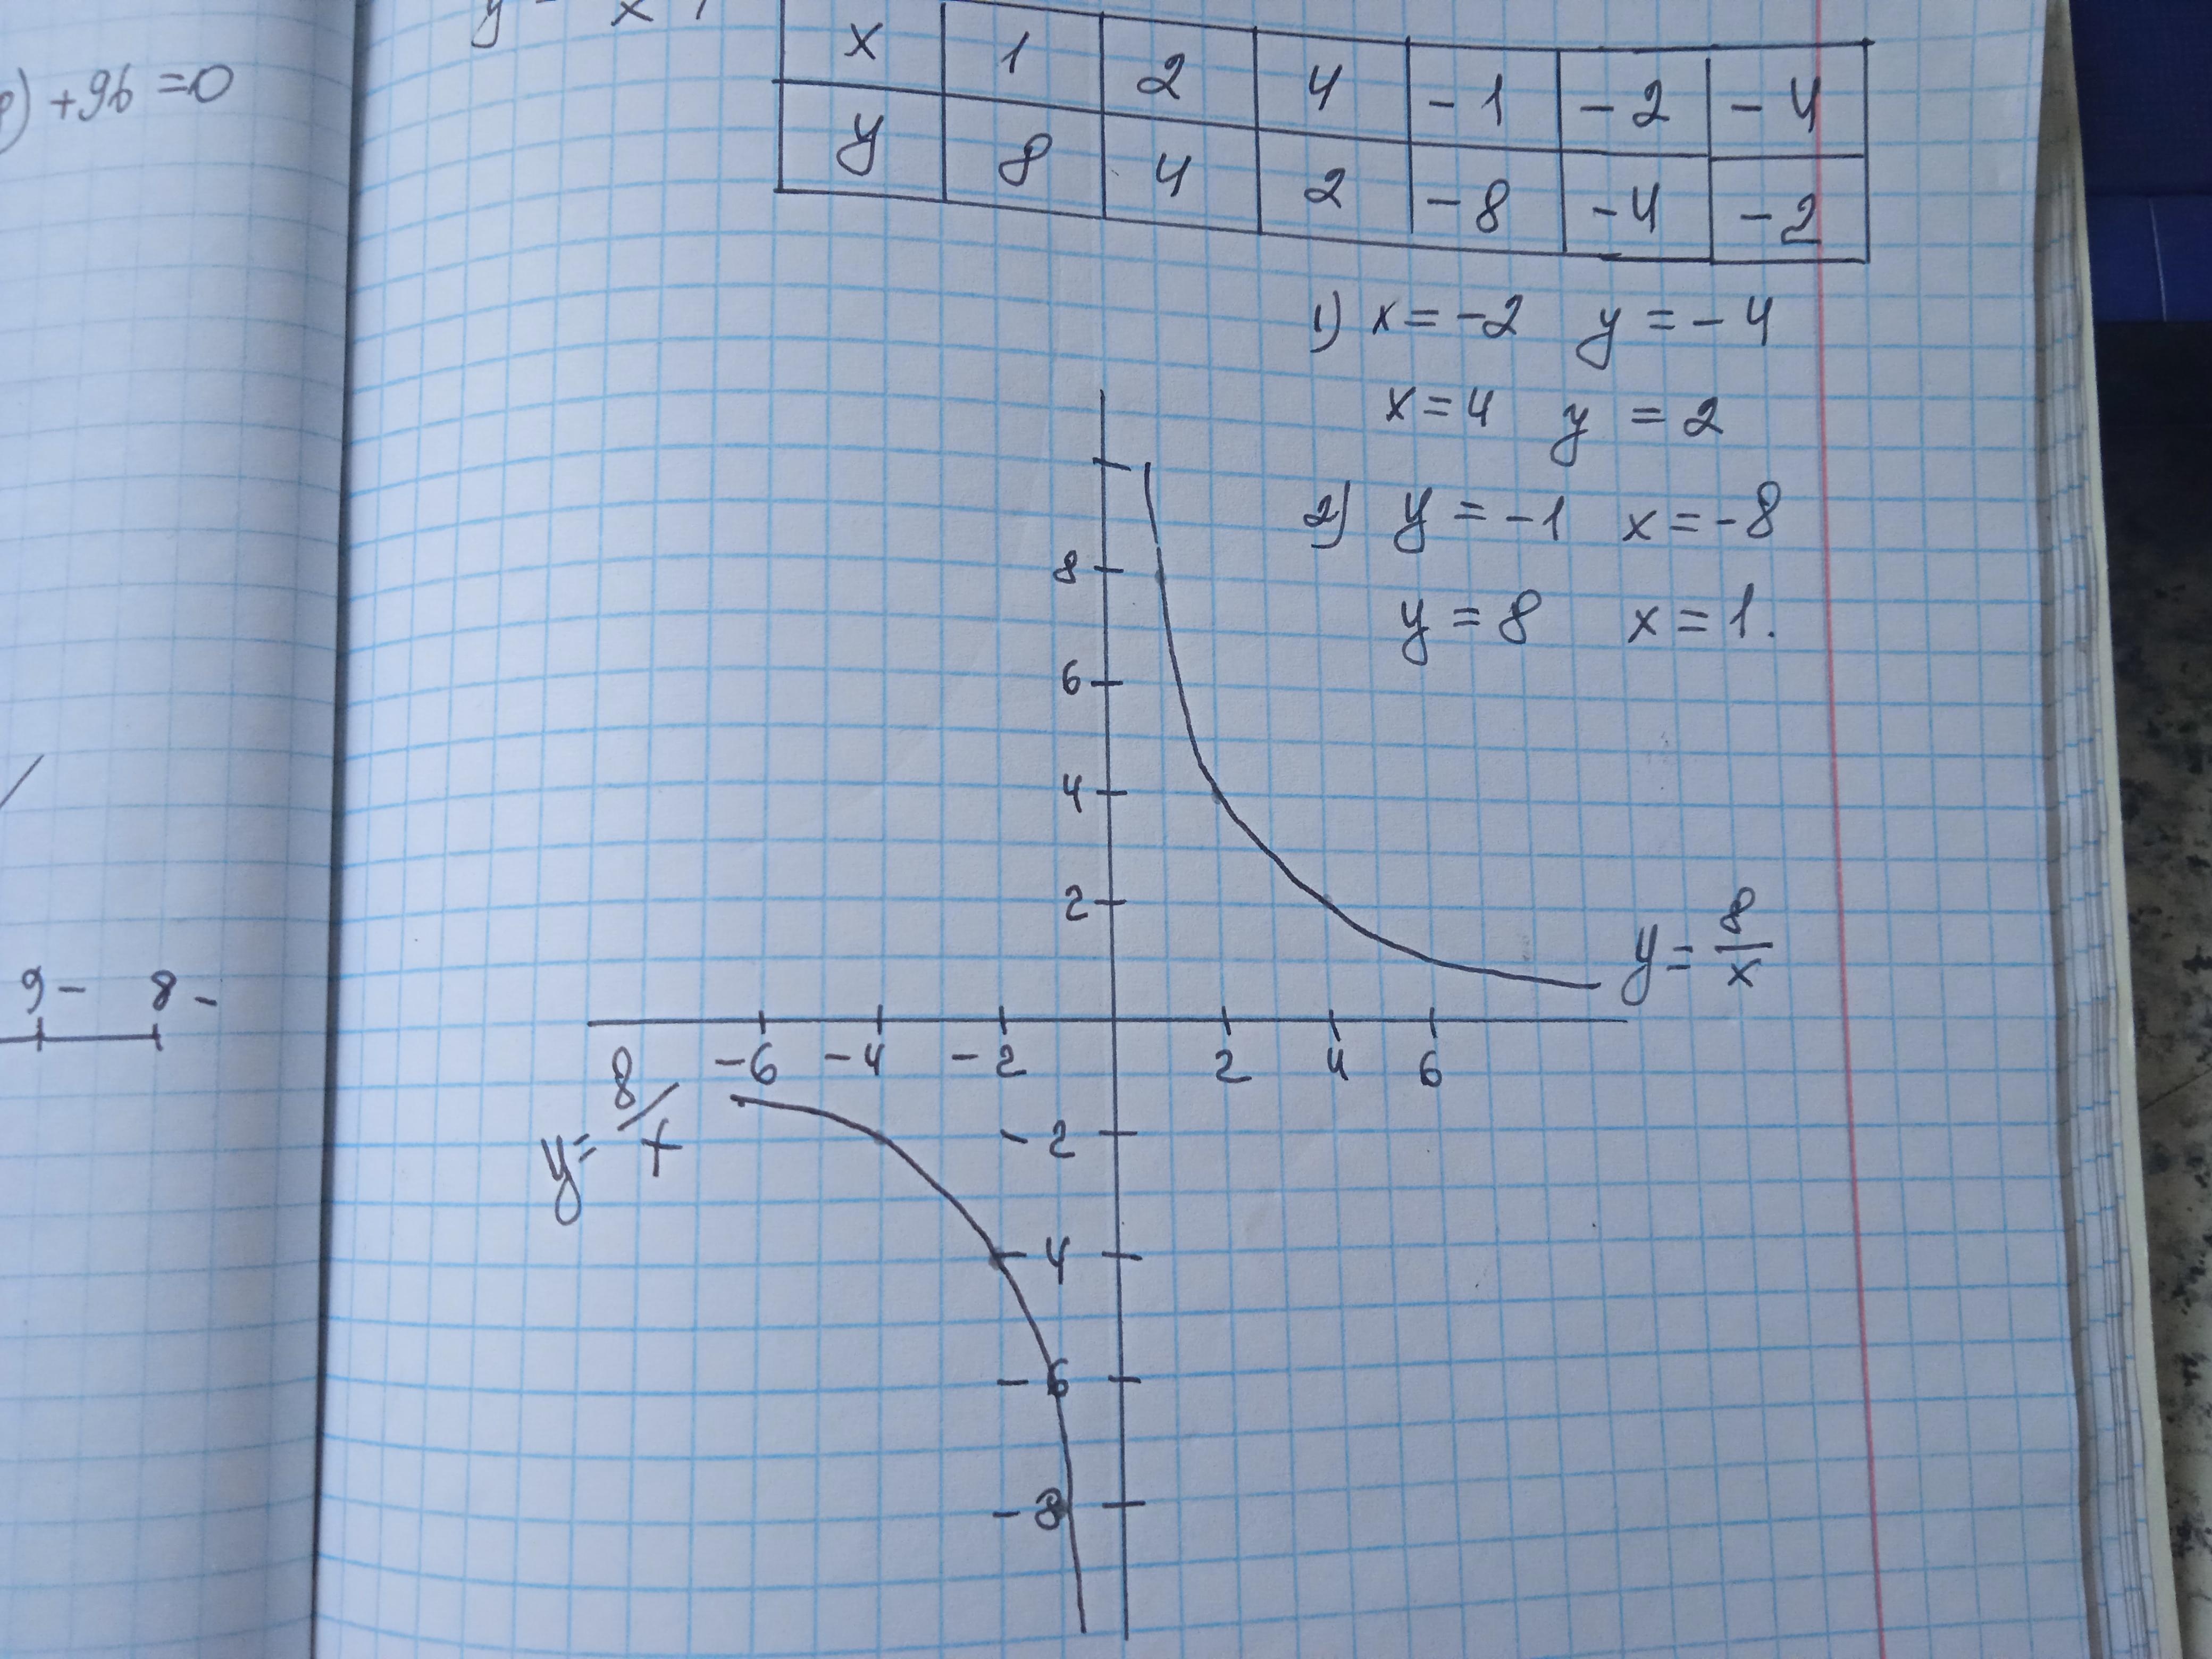 ) +96 =0
x 1 2 4 -1 -2 -4
y 8 4 2 -8 -4 -2
1) x = -2 y = -4
x = 4 y = 2
2) y = -1 x = -8
y = 8 x = 1.
8
6
4
2
y = 8/x
-6 -4 -2 2 4 6
y = 8/x
-2
-4
-6
-8
9 - 8 -